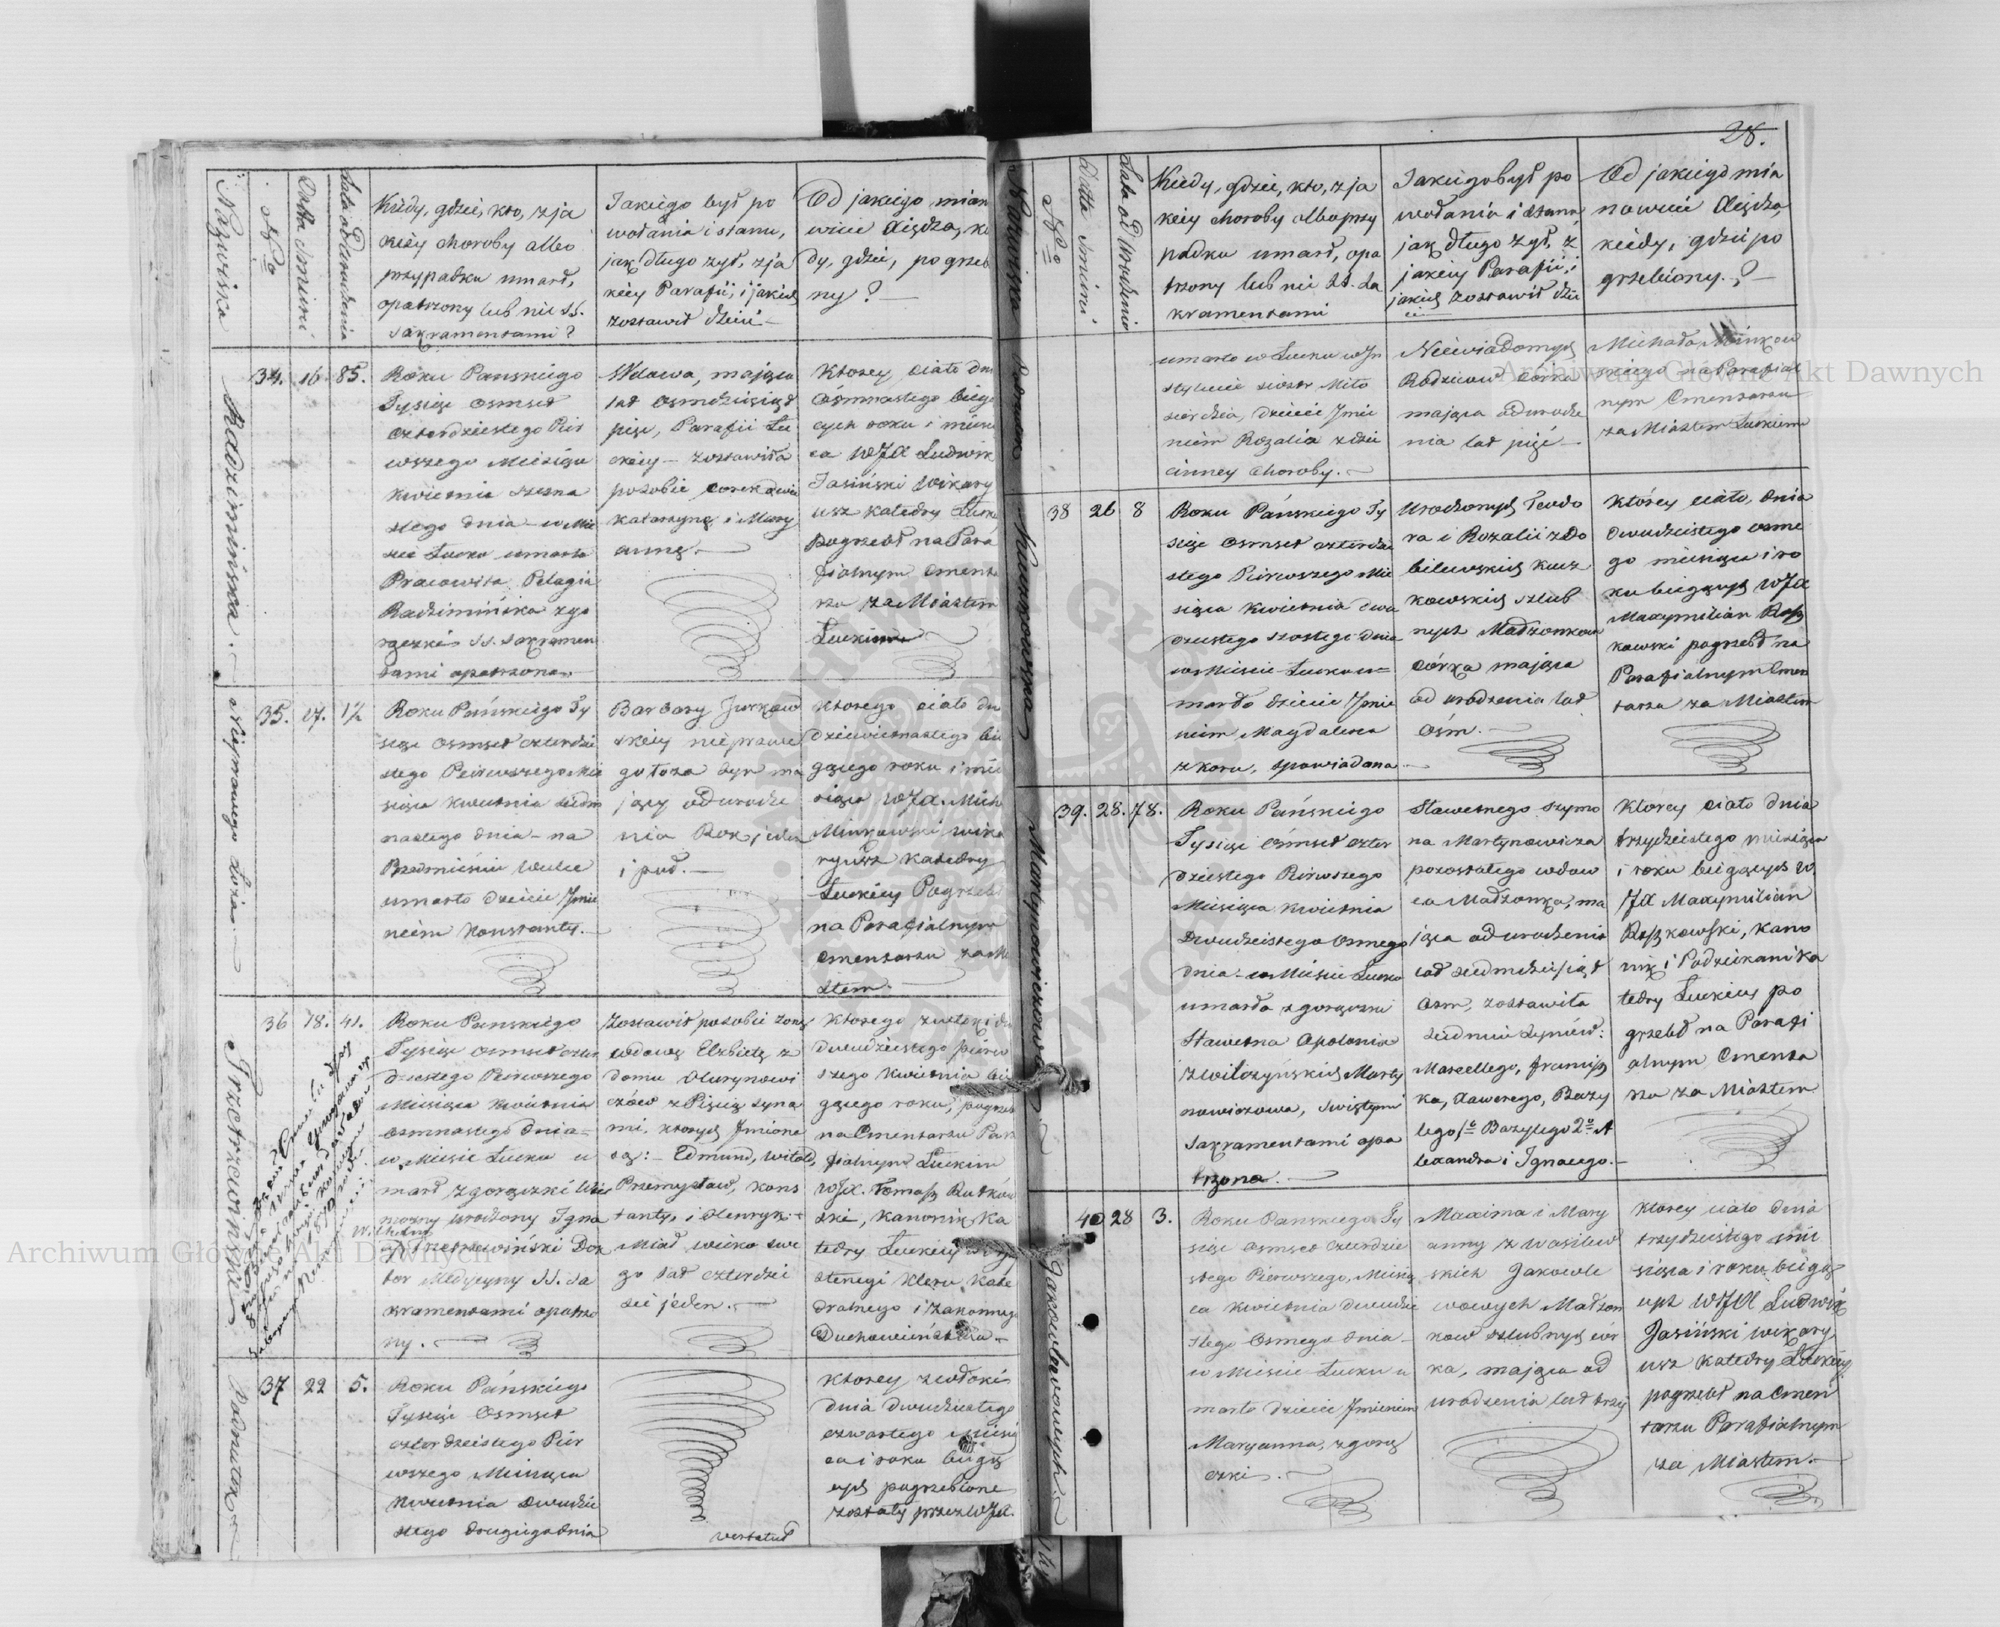 Nazwiska
No
Datta Smierci
Lata od Urodzenia
Kiedy, gdzie, kto, z ja
kiéy choroby albo
przypadku umarł,
opatrzony lub nie SS.
Sakramentami?
Jakiego był po
wołania i stanu,
jak długo żył, z ja
kiéy Parafii, i jakich
zostawił dzieci
Od jakiego mian
wicie Xiędza, ki
dy, gdzie, pogrzeb
ny?
Radzimińska.
34. 16 85.
Roku Panskiego
Tysiąc Osmset
Czterdziestego Pier
wszego Miesiąca
Kwietnia szesna
stego dnia w Mie
scie Łucku umarła
Pracowita Pelagia
Radzimińska z go
rączki SS. Sakramen
tami opatrzona.
Wdowa, mająca
lat Osmdziesiąt
pięć, Parafii Łu
ckiéy – zostawiła
po sobie corek dwie
Katarzynę i Mary
annę.
Ktorey ciało dn
Osmnastego bieżą
cych roku i miesią
ca WJX Ludwik
Jasiński Wikary
usz Katedry Łucki
Pogrzebł na Para
fialnym Cmenta
rzu za Miastem
Łuckiem
Nieprawego Łoża.
35. 17. 1½
Roku Pańskiego Ty
siąc Osmset czterdzie
stego Pierwszego Mie
siąca Kwietnia siedm
nastego dnia – na
Przedmieściu Wulce
umarło dziecie Jmie
niem Konstanty.
Barbary Jurkow
skiéy nieprawe
go łoża Syn ma
jący od urodze
nia Rok jeden
i puł.
Ktorego ciało dn
dziewietnastego bie
żącego roku i mie
siąca WJX. Mich
Minkowski Wika
ryusz Katedry
Łuckiey Pogrzebł
na Parafialnym
Cmentarzu za Mi
stem.
Trzetrzewiński
36 18. 41.
Roku Panskiego
Tysiąc Osmset czter
dziestego Pierwszego
Miesiąca Kwietnia
Osmnastego dnia
w Miescie Łucku u
marł z gorączki Wiel
możny Urodzony Igna
Trzetrzewiński Dok
tor Medycyny SS. Sa
kramentami opatrzo
ny.
Zostawił po sobie żonę
wdowę Elzbietę z
domu Olszynowi
czów z Pięcią Syna
mi, ktorych Jmiona
są: – Edmund, Witold,
Przemysław, Kons
tanty, i Henryk.
Miał wieku swe
go lat czterdzie
ści jeden.
Ktorego zwłoki dn
dwudziestego pierw
szego Kwietnia bie
żącego roku, pogrzeb
na Cmentarzu Para
fialnym Łuckim
WJX. Tomasz Rutkow
ski, Kanonik Ka
tedry Łuckiéy
Kleru Kate
dralnego i Zakonnego
Duchowieństwa.
Podrzutek
37 22 5.
Roku Pańskiego
Tysiąc Osmset
czterdziestego Pier
wszego Miesiąca
Kwietnia dwudzie
stego drugiego dnia
Ktorey zwłoki
dnia dwudziestego
czwartego miesią
ca i roku bieżą
cych pogrzebione
zostały przez WJX.
28.
Nazwiska
No
Datta Smierci
Lata od Urodzenia
Kiedy, gdzie, kto, z ja
kiéy choroby albo przy
padku umarł, opa
trzony lub nie SS. Sa
kramentami
Jakiego był po
wołania i stanu,
jak długo żył, z
jakiéy Parafii, i
jakich zostawił dzie
ci
Od jakiego mia
nowicie Xiędza,
kiedy, gdzie po
grzebiony?
Podrzutek
umarło w Łucku w In
stytucie Siostr Miło
sierdzia, dziecie Jmie
niem Rozalia z dzie
cinney choroby.
Niewiadomych
Rodziców Córka
mająca od urodze
nia lat pięć
Michała Minkow
skiego na Parafial
nym Cmentarzu
za Miastem Łuckiem
Kuczkowska
38 26 8
Roku Pańskiego Ty
siąc Osmset czterdzie
stego Pierwszego Mie
siąca Kwietnia dwu
dziestego szostego dnia
w Miescie Łucku u=
marło dziecie Jmie
niem Magdalena
z koru, spowiadana
Urodzonych Teodo
ra i Rozalii z Do
bilewskich Kucz
kowskich szlub
nych Małżonków
Córka mająca
od urodzenia lat
Osm.
Którey ciało, dnia
Dwudziestego osme
go miesiąca i ro
ku bieżących WJX
Maxymilian Rosz
kowski pogrzebł na
Parafialnym Cmen
tarzu za Miastem
Martynowiczowa
39. 28. 78.
Roku Pańskiego
Tysiąc Osmset czter
dziestego Pierwszego
Miesiąca Kwietnia
Dwudziestego Osmego
dnia w Miescie Łucku
umarła z gorączki
Sławetna Apolonia
z Wilczyńskich Marty
nowiczowa, Swiętymi
Sakramentami opa
trzona.
Sławetnego Szymo
na Martynowicza
pozostałego wdow
ca Małżonka, ma
jąca od urodzenia
lat siedmdziesiąt
Osm, zostawiła
siedmiu Synów:
Marcellego, Francisz
ka, Xawerego, Bazy
lego 1o Bazylego 2o A
lexandra i Ignacego.
Ktorey ciało dnia
trzydziestego miesiąca
i roku bieżących W
JX Maxymilian
Roszkowski, Kano
nik i Podziekani Ka
tedry Łuckiey po
grzebł na Parafi
alnym Cmenta
rzu za Miastem
Jakowlewowych.
40 28 3.
Roku Panskiego Ty
siąc Osmset Czterdzie
stego Pierwszego, Miesią
ca Kwietnia dwudzie
stego Osmego dnia
w Miescie Łucku u
marło dziecie Jmieniem
Maryanna, z gorą
czki.
Maxima i Mary
anny z Wasilew
skich Jakowle
wowych Małżon
ków szlubnych cór
ka, mająca od
urodzenia lat trzy
Ktorey ciało dnia
trzydziestego mie
siąca i roku bieżą
cych WJX Ludwik
Jasiński Wikary
usz Katedry Łuckiey
pogrzebł na Cmen
tarzu Parafialnym
za Miastem.
Archiwum Główne Akt Dawnych
Archiwum Główne Akt Dawnych